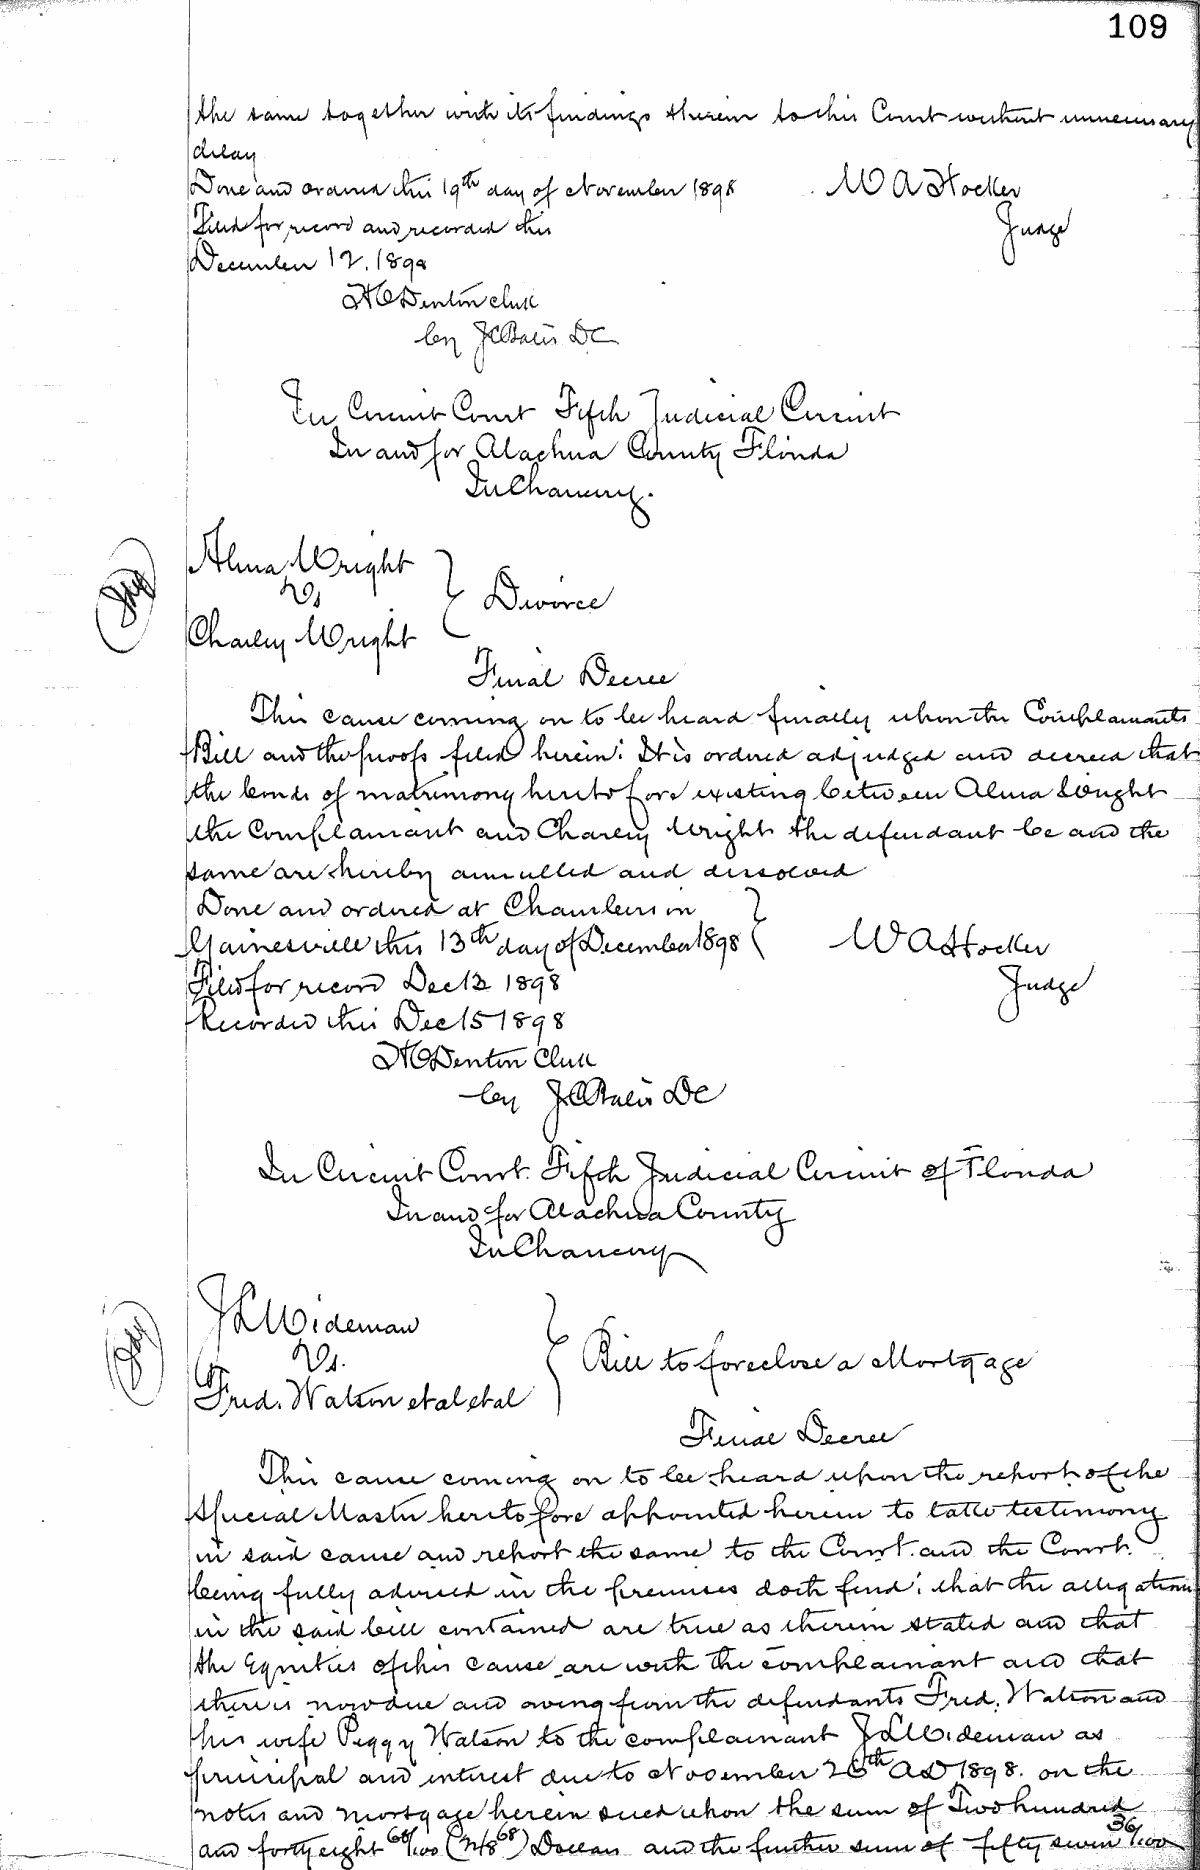 109
the same together with its findings therein to this Court without unnecessary
delay
Done and ordered this 19th day of November 1898 W A Hocker
Judge
Filed for record and recorded this
December 12. 1898
H C Denton clerk
by J C Bates DC
In Circuit Court Fifth Judicial Circuit
In and for Alachua County Florida
In Chancery.
Alma Wright
Vs
Charley Wright
Divorce
Final Decree
This cause coming on to be heard finally upon the Complainants
Bill and the proofs filed herein: It is ordered adjudged and decreed that
the bonds of matrimony heretofore existing between Alma Wright
the Complainant and Charley Wright the defendant be and the
same are hereby annulled and dissolved
Done and ordered at Chambers in
Gainesville this 13th day of December 1898 W A Hocker
Judge
Filed for record Dec 13 1898
Recorded this Dec 15 1898
H C Denton Clerk
by J C Bates DC
In Circuit Court. Fifth Judicial Circuit of Florida
In and for Alachua County
In Chancery
J L Wideman
Vs.
Fred. Watson et al et al
Bill to foreclose a Mortgage
Final Decree
This cause coming on to be heard upon the report of the
Special Master heretofore appointed herein to take testimony
in said cause and report the same to the Court. and the Court.
being fully advised in the premises doth find; that the allegations
in the said bill contained are true as therein stated and that
the Equities of this cause are with the complainant and that
there is now due and owing from the defendants Fred. Watson and
his wife Peggy Watson to the complainant J L Wideman as
principal and interest due to November 26th AD 1898. on the
notes and mortgage herein sued upon the sum of Two hundred
and forty eight 68/100 (248 68) Dollars and the further sum of fifty seven 36/100